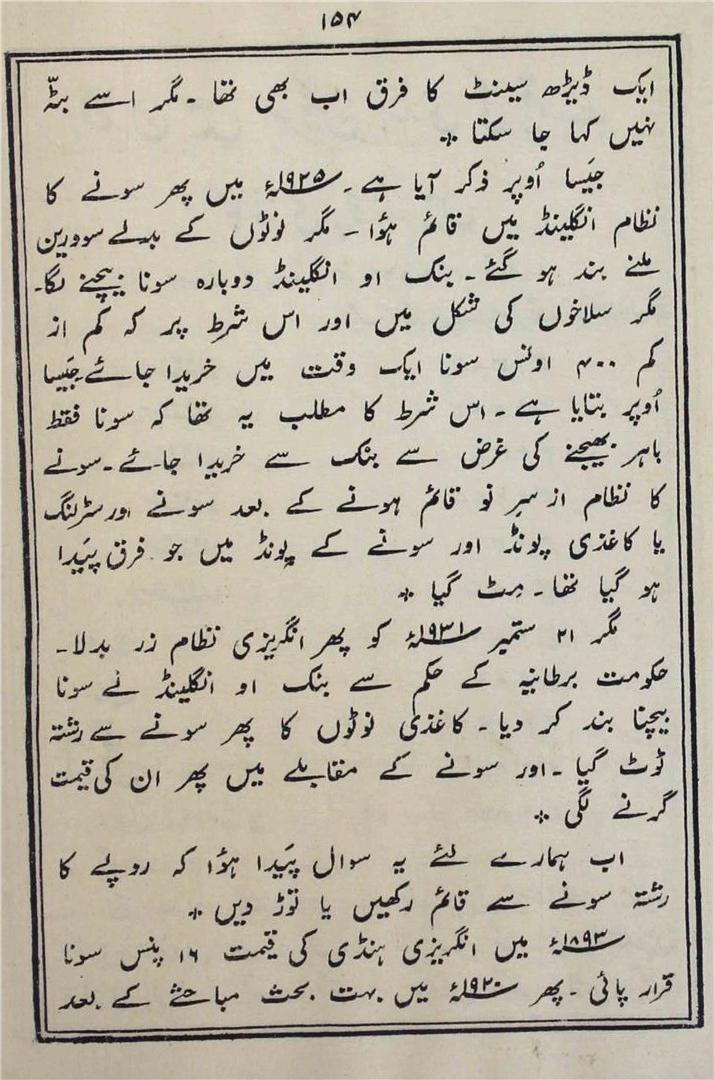 ۱۵۴
ایک ڈیڑھ سینٹ کا فرق اب بھی تھا ۔ مگر اسے بٹّہ
نہیں کہا جا سکتا *
جَیسا اُوپر ذکر آیا ہے ۔ ۱۹۲۵ء میں پھر سونے کا
نظام انگلینڈ میں قائم ہؤا ۔ مگر نوٹوں کے بدلے سوورین
ملنے بند ہو گئے ۔ بنک او انگلینڈ دوبارہ سونا بیچنے لگا ۔
مگر سلاخوں کی شکل میں اور اس شرط پر کہ کم از
کم ۴۰۰ اونس سونا ایک وقت میں خریدا جائے جَیسا
اُوپر بتایا ہے ۔ اس شرط کا مطلب یہ تھا کہ سونا فقط
باہر بھیجنے کی غرض سے بنک سے خریدا جائے ۔ سونے
کا نظام از سرِ نو قائم ہونے کے بعد سونے اور سٹرلنگ
یا کاغذی پونڈ اور سونے کے پونڈ میں جو فرق پَیدا
ہو گیا تھا ۔ مِٹ گیا *
مگر ۲۱ ستمبر ۱۹۳۱ء کو پھر انگریزی نظام زر بدلا ۔
حکومت برطانیہ کے حکم سے بنک او انگلینڈ نے سونا
بیچنا بند کر دیا ۔ کاغذی نوٹوں کا پھر سونے سے رشتہ
ٹوٹ گیا ۔ اور سونے کے مقابلے میں پھر ان کی قیمت
گرنے لگی *
اب ہمارے لئے یہ سوال پَیدا ہؤا کہ روپے کا
رشتہ سونے سے قائم رکھیں یا توڑ دیں *
۱۸۹۳ء میں انگریزی ہنڈی کی قیمت ۱۶ پنس سونا
قرار پائی ۔ پھر ۱۹۲۰ء میں بہت بحث مباحثے کے بعد